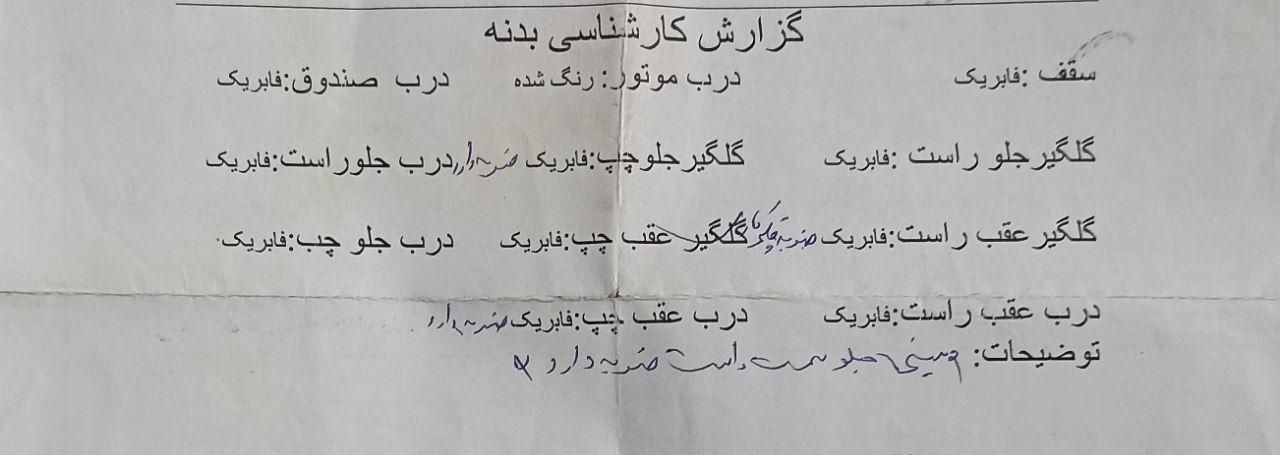 گزارش کارشناسی بدنه
سقف :فابریک درب موتور: رنگ شده درب صندوق:فابریک
گلگیر جلو راست :فابریک گلگیر جلو چپ:فابریک ضربه دارد درب جلو راست:فابریک
گلگیر عقب راست:فابریک ضربه گلگیر عقب چپ:فابریک درب جلو چپ:فابریک
درب عقب راست:فابریک درب عقب چپ:فابریک ضربه دارد
توضیحات: سینی جلو سمت راست ضربه دارد